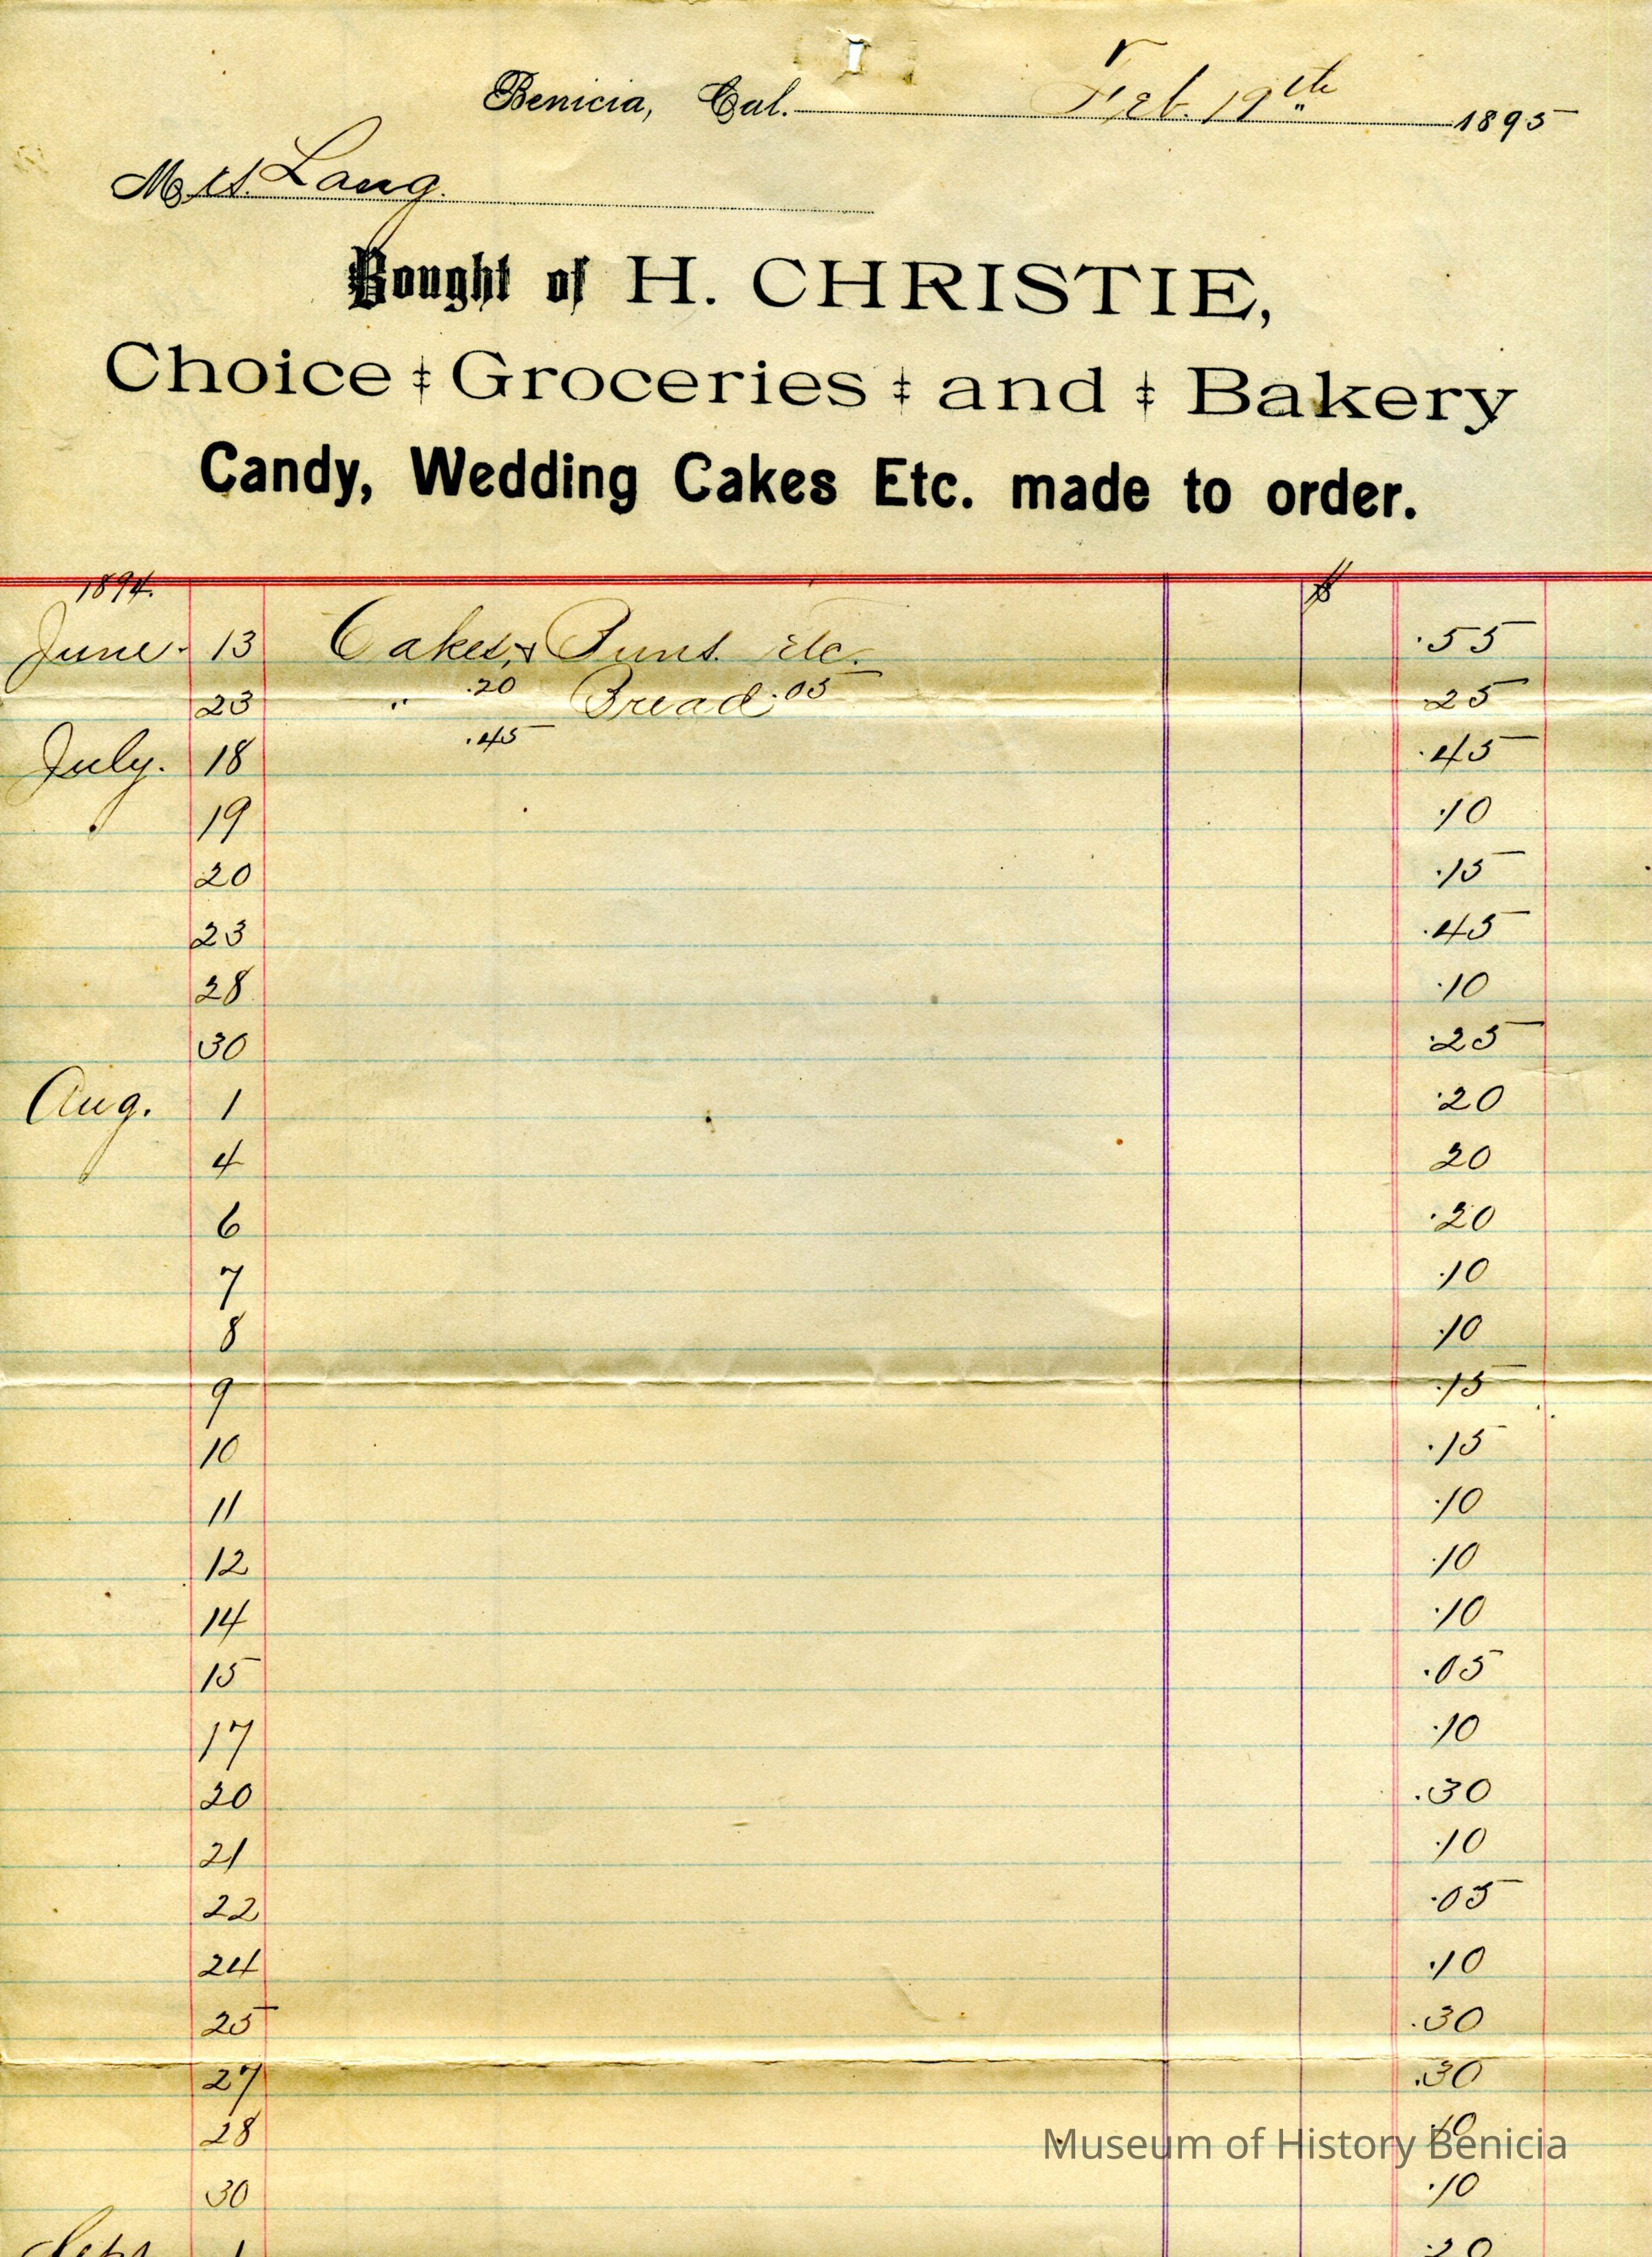 Benicia, Cal. Feb. 19th 1895
Mrs. Lang.
Bought of H. CHRISTIE,
Choice ‡ Groceries ‡ and ‡ Bakery
Candy, Wedding Cakes Etc. made to order.
1894. $
June. 13 Cakes, & Buns. Etc. .55
23 " .20 Bread .05 .25
July. 18 .45 .45
19 .10
20 .15
23 .45
28 .10
30 .25
Aug. 1 .20
4 20
6 .20
7 .10
8 .10
9 .15
10 .15
11 .10
12 .10
14 .10
15 .05
17 .10
20 .30
21 .10
22 .05
24 .10
25 .30
27 .30
28 .10
Museum of History Benicia
30 .10
Sept. 1 .20